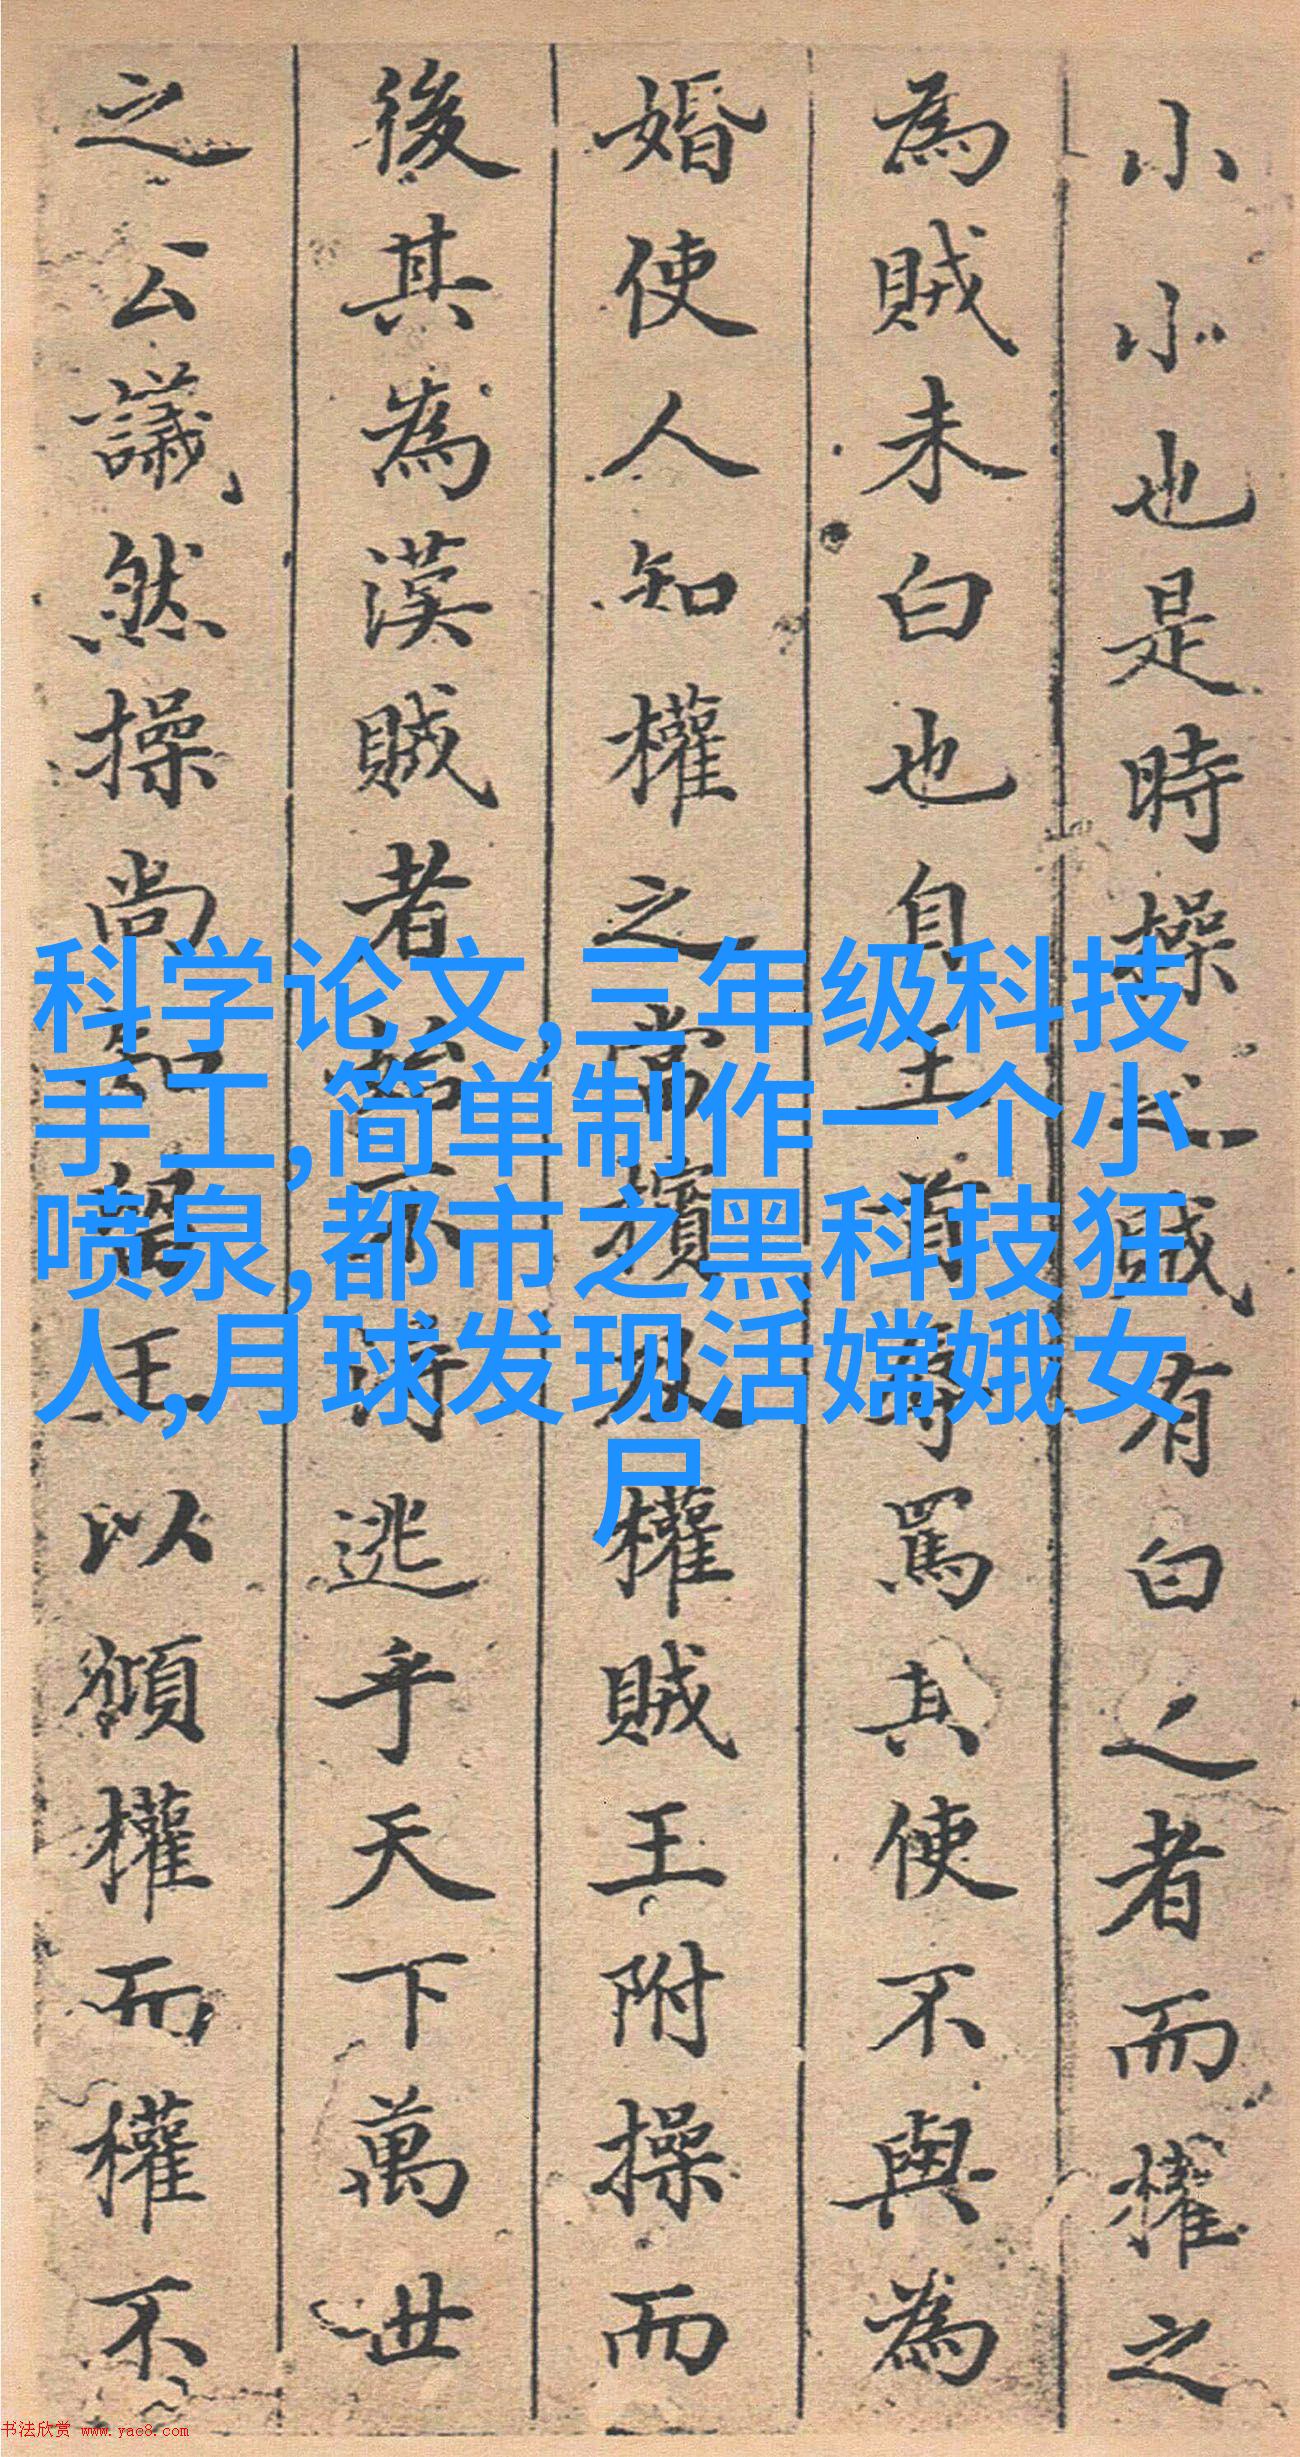 小小也是時操之賊有白之者而權之
為賊未白也自主首罵其使不與為
婚使人知權之當擯權賊王附操而
後其為漢賊者始不得逃乎天下萬世
之公議然操尚知留王以權而權不
科学论文,三年级科技
手工,简单制作一个小
喷泉,都市之黑科技狂
人,月球发现活嫦娥女
尸
书法欣赏 www.yac8.com